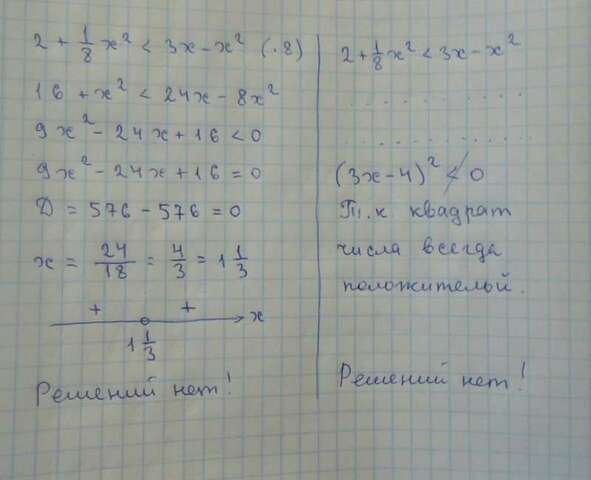 2 + 1/8 x² < 3x - x² (·8)
16 + x² < 24x - 8x²
9x² - 24x + 16 < 0
9x² - 24x + 16 = 0
D = 576 - 576 = 0
x = 24/18 = 4/3 = 1 1/3
+ + x
1 1/3
Решений нет!
2 + 1/8 x² < 3x - x²
. . . . . . . . . .
. . . . . . . . . .
(3x - 4)² ≮ 0
Т.к. квадрат
числа всегда
положителый.
Решений нет!